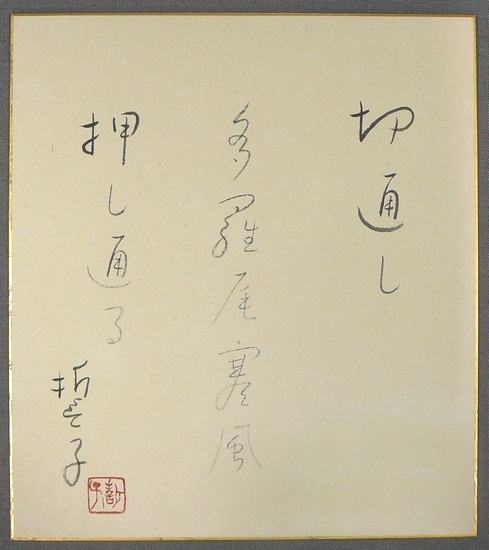 切通し
多羅尾寒風
押し通る
誓子